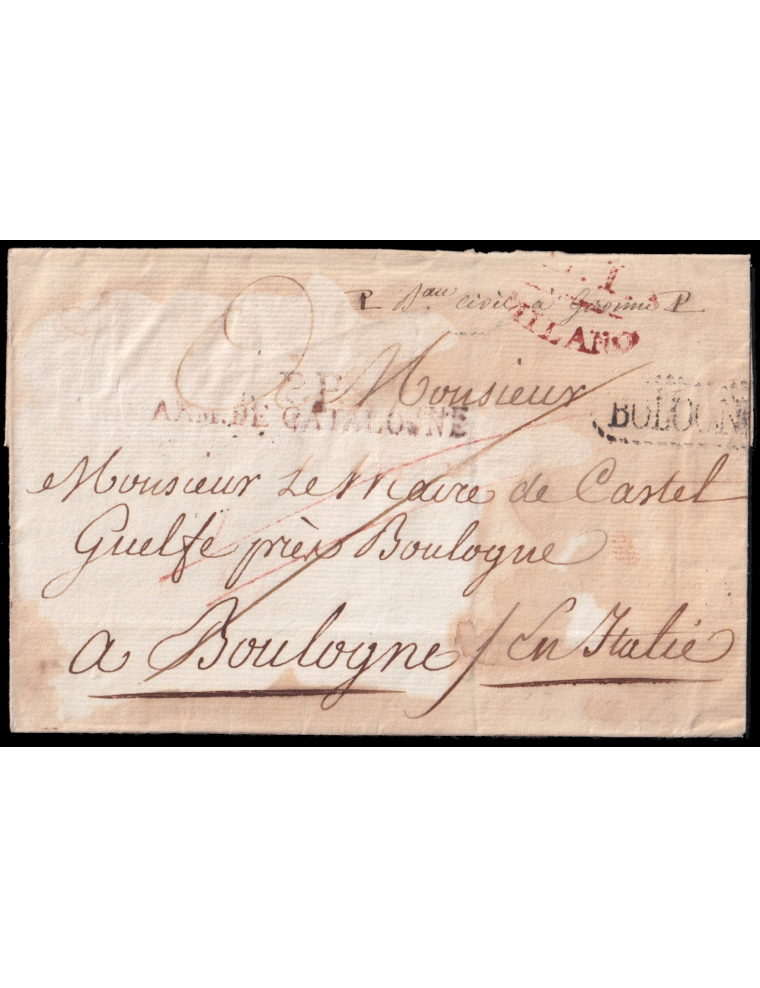 P Bau civil à Gironne P
MILANO
P.P.
ARM. DE CATALOGNE
Monsieur
BOLOGN
Monsieur Le Maire de Castel
Guelfe près Boulogne
a Boulogne / En Italie